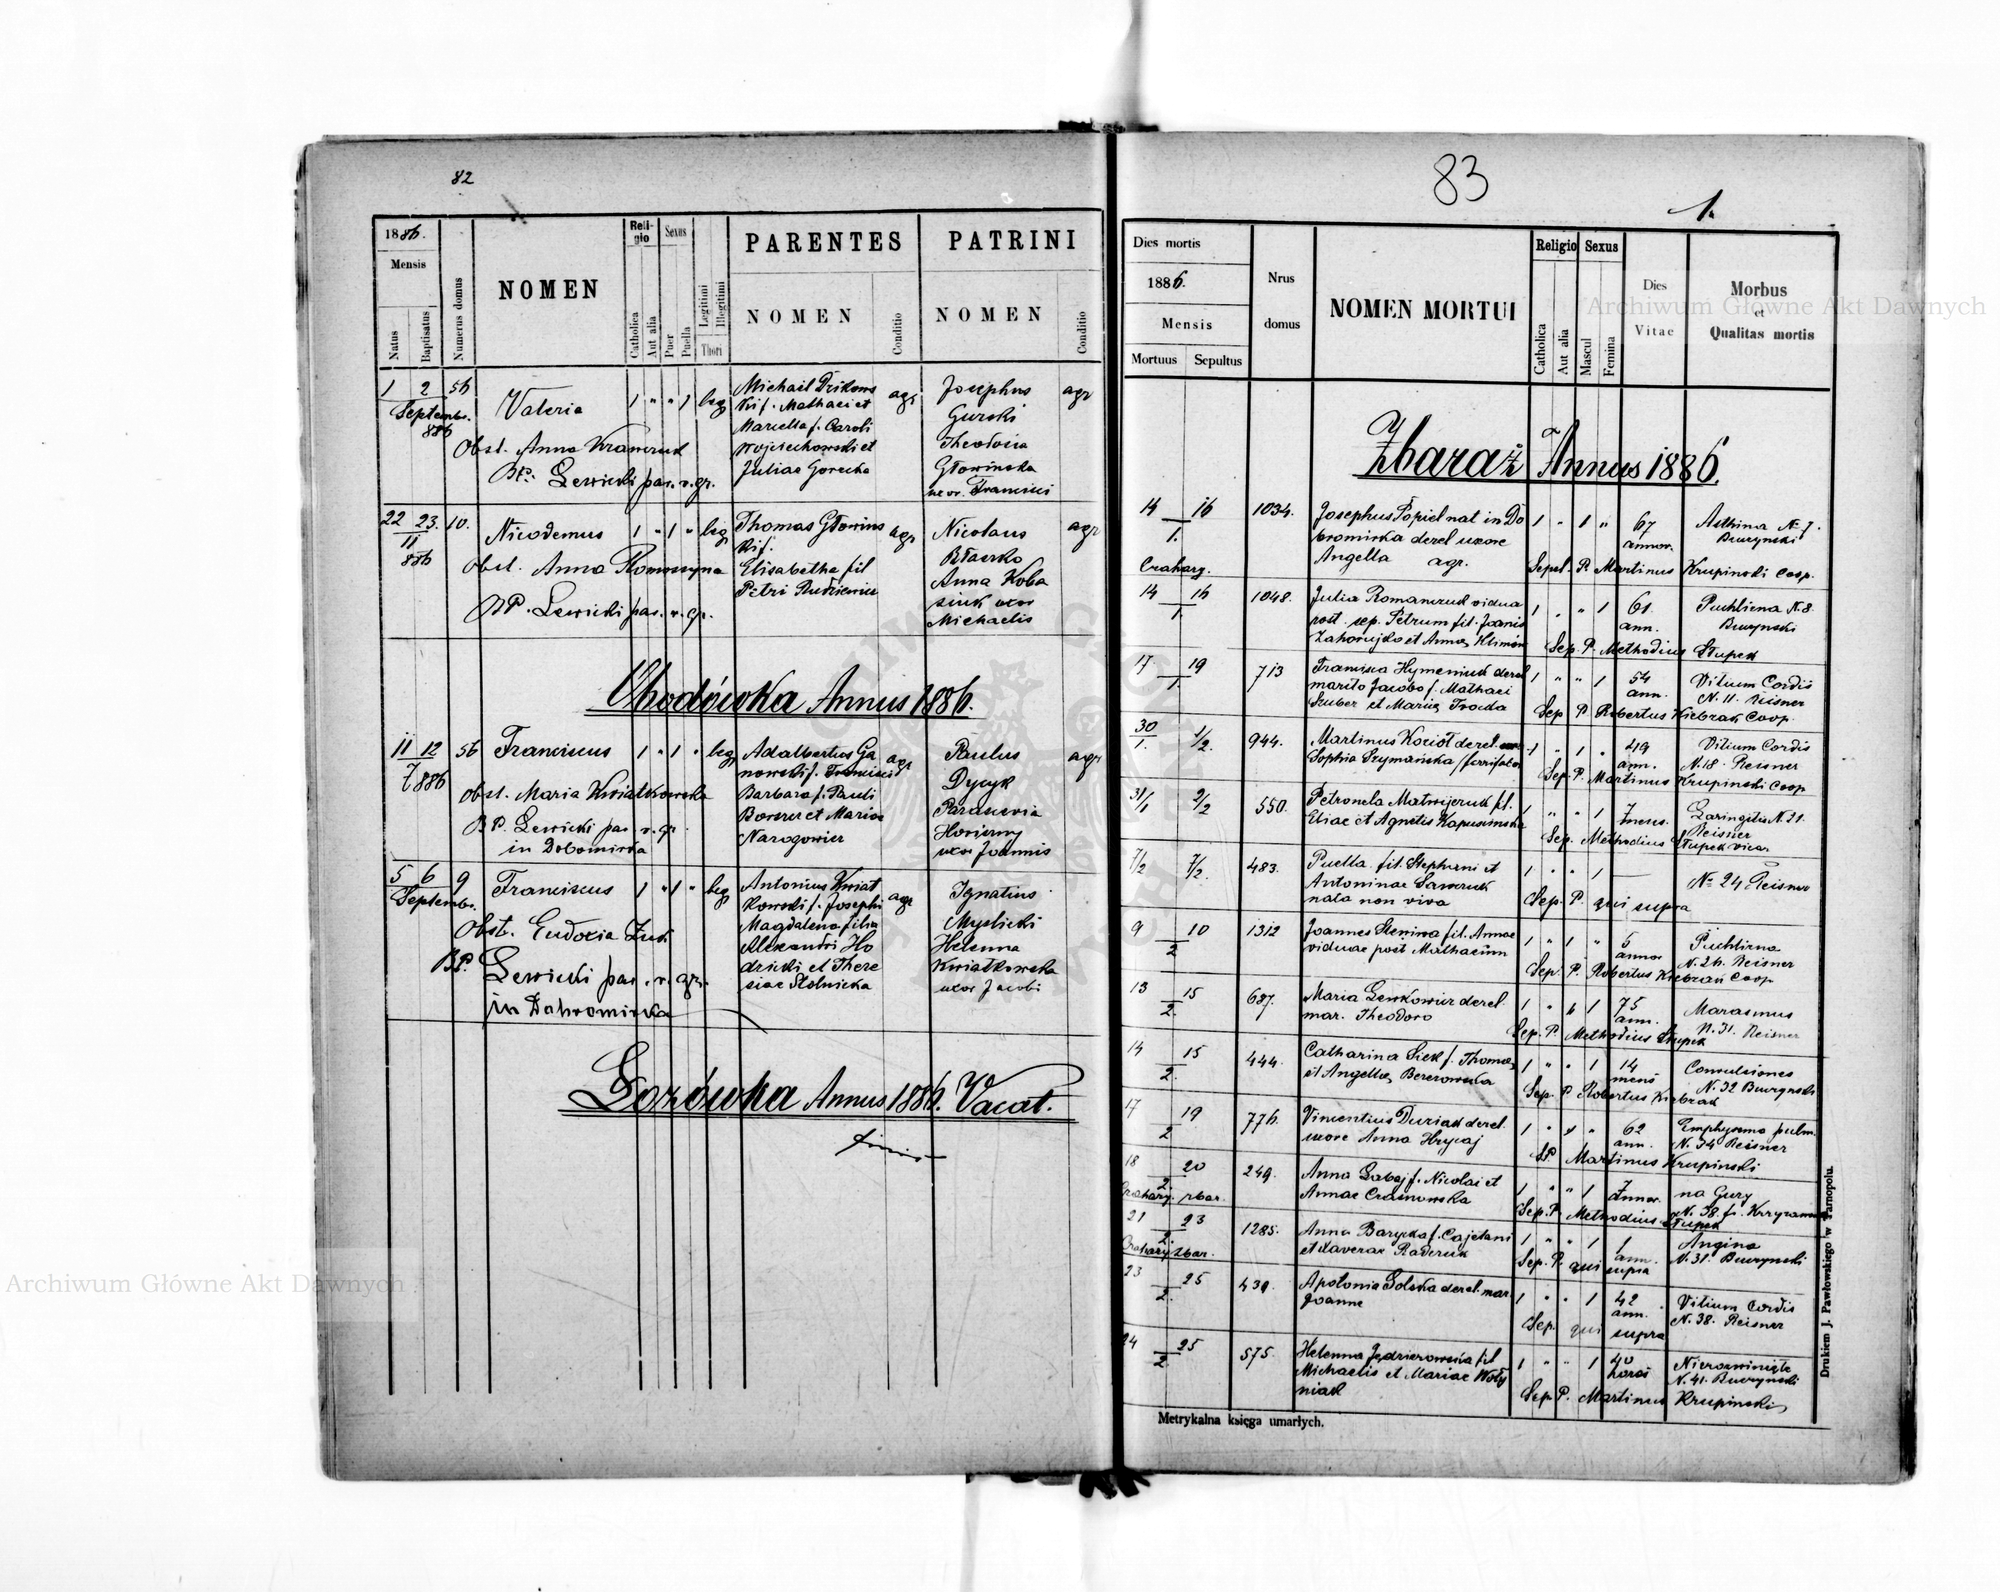 82
1886.
Mensis
Natus
Baptisatus
Numerus domus
NOMEN
Reli-
gio
Catholica
Aut alia
Sexus
Puer
Puella
Legitimi
Illegitimi
Thori
PARENTES
NOMEN
Conditio
PATRINI
NOMEN
Conditio
1 2 56 Valeria 1 " " 1 leg
Septemb.
886
Michael
kif. Mathaei et
Marcella f. Caroli
Wojciechowski et
Juliae Gorecka
agr
Josephus
Gurski
Theodosia
Głowinska
uxor Francisci
agr
Obst. Anna Krawczuk
BP. Lewicki par. r. gr.
22 23. 10. Nicodemus 1 " 1 " leg
11
886
Thomas Głowins
kif.
Elisabetha fil
Petri Rudkiewicz
agr
Nicolaus
Błaszko
Anna Koba
siuk uxor
Michaelis
agr
Obst. Anna Romaszyna
BP. Lewicki par. r. gr.
Chodówka Annus 1886.
11 12 56 Franciscus 1 " 1 " leg
7 886
Adalbertus Ga
nowski f. Francisci
Barbara f. Pauli
et Maria
Narogowicz
agr
Paulus
Dycyk
Parascevia
uxor Joannis
agr
Obst. Maria Kwiatkowska
BP. Lewicki par. r. gr.
in Dobromirka
5 6 9 Franciscus 1 " 1 " leg
Septemb.
Antonius Kwiat
kowski f. Josephi
Magdalena filia
Alexandri Ho
dzicki et There
siae Stolnicka
agr
Ignatius
Myslicki
Helenna
Kwiatkowska
uxor Jacobi
Obst. Eudoxia Zuk
BP. Lewicki par. r. gr.
in Dobromirka
Lozówka Annus 1886. Vacat.
finis
83
1.
Dies mortis
1886.
Mensis
Mortuus
Sepultus
Nrus
domus
NOMEN MORTUI
Religio
Catholica
Aut alia
Sexus
Mascul
Femina
Dies
Vitae
Morbus
et
Qualitas mortis
Zbaraż Annus 1886.
14 16 1034. Josephus Popiel nat in Do 1 " 1 " 67 Asthma N. 7.
1. bromirka derel uxore annor. Burzynski
Czahary. Angella agr. Sepel. P. Martinus Krupinski Coop.
14 16 1048. Julia Romanczuk vidua 1 " " 1 61. Puchlina N. 8.
1. post. sep. Petrum fil. Joanis ann. Burzynski
Zahorujko et Annae Sep. P. Methodius Słupek
17 19 713 Francisca Hymeniuk derel 1 " " 1 54 Vitium Cordis
1. marito Jacobo f. Mathaei ann. N. 11. Reisner
Szuber et Mariae Sep P. Robertus Kiebzak Coop.
30 1/2. 944. Martinus Kozioł derel. 1 " 1 " 49 Vitium Cordis
1. Sophia Szymańska ann. N. 18. Reisner
Sep. P. Martinus Krupinski Coop
31/1 2/2 550. Petronela Matwijczuk fil. 1 " " 1 7 Laringitis N. 21.
Eliae et Agnetis mens. Reisner
Sep. Methodius Słupek vicar
7/2 7/2. 483. Puella fil. Stephani et 1 " " 1 — No 24 Reisner
Antoninae Sawczuk
nata non viva Sep. P. qui supra
9 10 1312 Joannes fil. Annae 1 " 1 " 5 Puchlina
2 viduae post Mathaeum annor N. 26. Reisner
Sep. P. Robertus Kiebzak Coop
13 15 687. Maria Lewkowicz derel. 1 " " 1 75 Marasmus
2. mar. Theodoro ann. N. 31. Reisner
Sep. P. Methodius Słupek
14 15 444. Catharina f. Thomae 1 " " 1 14 Convulsiones
2. et Angellae Bererowska mens N. 32 Burzynski
Sep. P. Robertus Kiebzak
17 19 776. Vincentius Duriak derel. 1 " 1 " 62 Emphysema pulm.
2 uxore Anna Hrycaj ann. N. 34 Reisner
SP. Martinus Krupinski
18 20 249. Anna f. Nicolai et 1 " " 1 7 na Gury
2. Annae annor. N. 38.
Czahary. zbar. Sep. P. Methodius Słupek
21 23 1285. Anna Barycka f. Cajetani 1 " " 1 1 Angina
2. et Xaverae Raderuk ann. N. 31. Burzynski
Czahary zbar. Sep. P. qui supra
23 25 439. Apolonia Golska derel. mar. 1 " " 1 42 Vitium Cordis
2. Joanne ann. N. 38. Reisner
Sep. qui supra
24 25 575. Helenna Jędzierowska fil 1 " " 1 40 Nierozwinięte
2 Michaelis et Mariae Woły horas N. 41. Burzynski
niak Sep P. Martinus Krupinski
Metrykalna księga umarłych.
Drukiem J. Pawłowskiego w Tarnopolu.
Archiwum Główne Akt Dawnych
Archiwum Główne Akt Dawnych